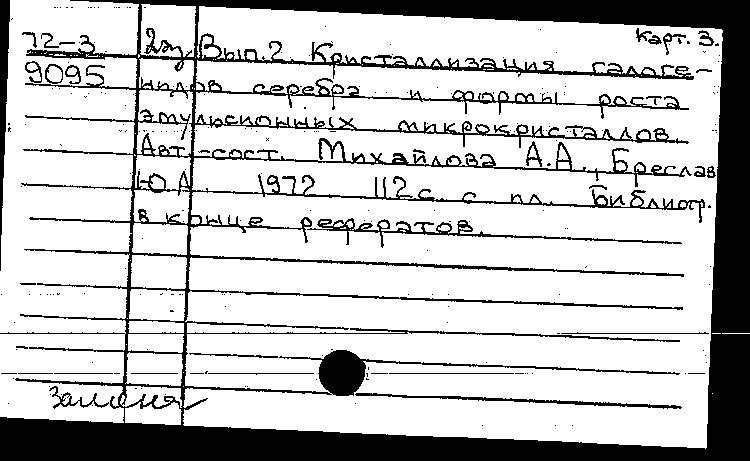 Карт. 3.
72-3 2эд. Вып.2. Кристаллизация галоге-
9095 нидов серебра и формы роста
эмульсионных микрокристаллов.
Авт.-сост. Михайлова А.А., Бреслав
Ю.А. 1972 112с. с ил. Библиогр.
в конце рефератов.